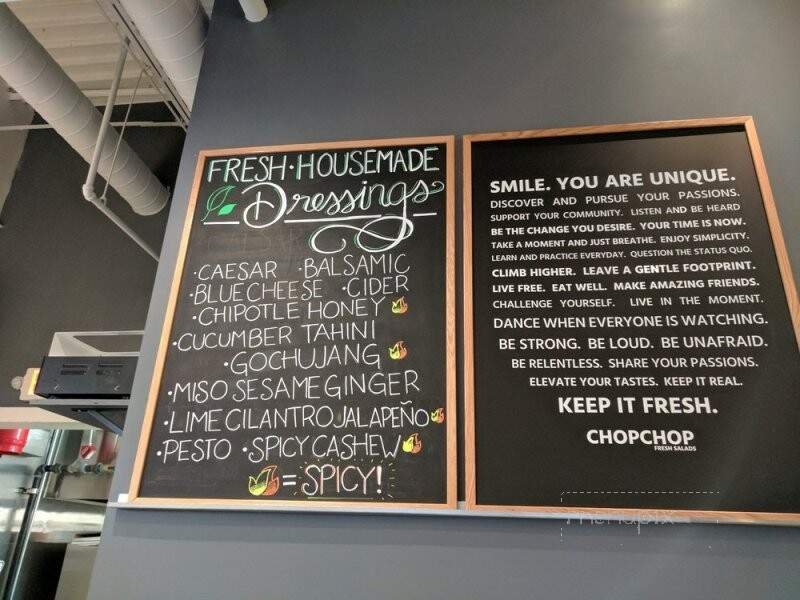 FRESH·HOUSEMADE
Dressings
·CAESAR ·BALSAMIC
·BLUE CHEESE ·CIDER
·CHIPOTLE HONEY
·CUCUMBER TAHINI
·GOCHUJANG
·MISO SESAME GINGER
·LIME CILANTRO JALAPEÑO
·PESTO ·SPICY CASHEW
= SPICY!
SMILE. YOU ARE UNIQUE.
DISCOVER AND PURSUE YOUR PASSIONS.
SUPPORT YOUR COMMUNITY. LISTEN AND BE HEARD
BE THE CHANGE YOU DESIRE. YOUR TIME IS NOW.
TAKE A MOMENT AND JUST BREATHE. ENJOY SIMPLICITY.
LEARN AND PRACTICE EVERYDAY. QUESTION THE STATUS QUO.
CLIMB HIGHER. LEAVE A GENTLE FOOTPRINT.
LIVE FREE. EAT WELL. MAKE AMAZING FRIENDS.
CHALLENGE YOURSELF. LIVE IN THE MOMENT.
DANCE WHEN EVERYONE IS WATCHING.
BE STRONG. BE LOUD. BE UNAFRAID.
BE RELENTLESS. SHARE YOUR PASSIONS.
ELEVATE YOUR TASTES. KEEP IT REAL.
KEEP IT FRESH.
CHOPCHOP
FRESH SALADS